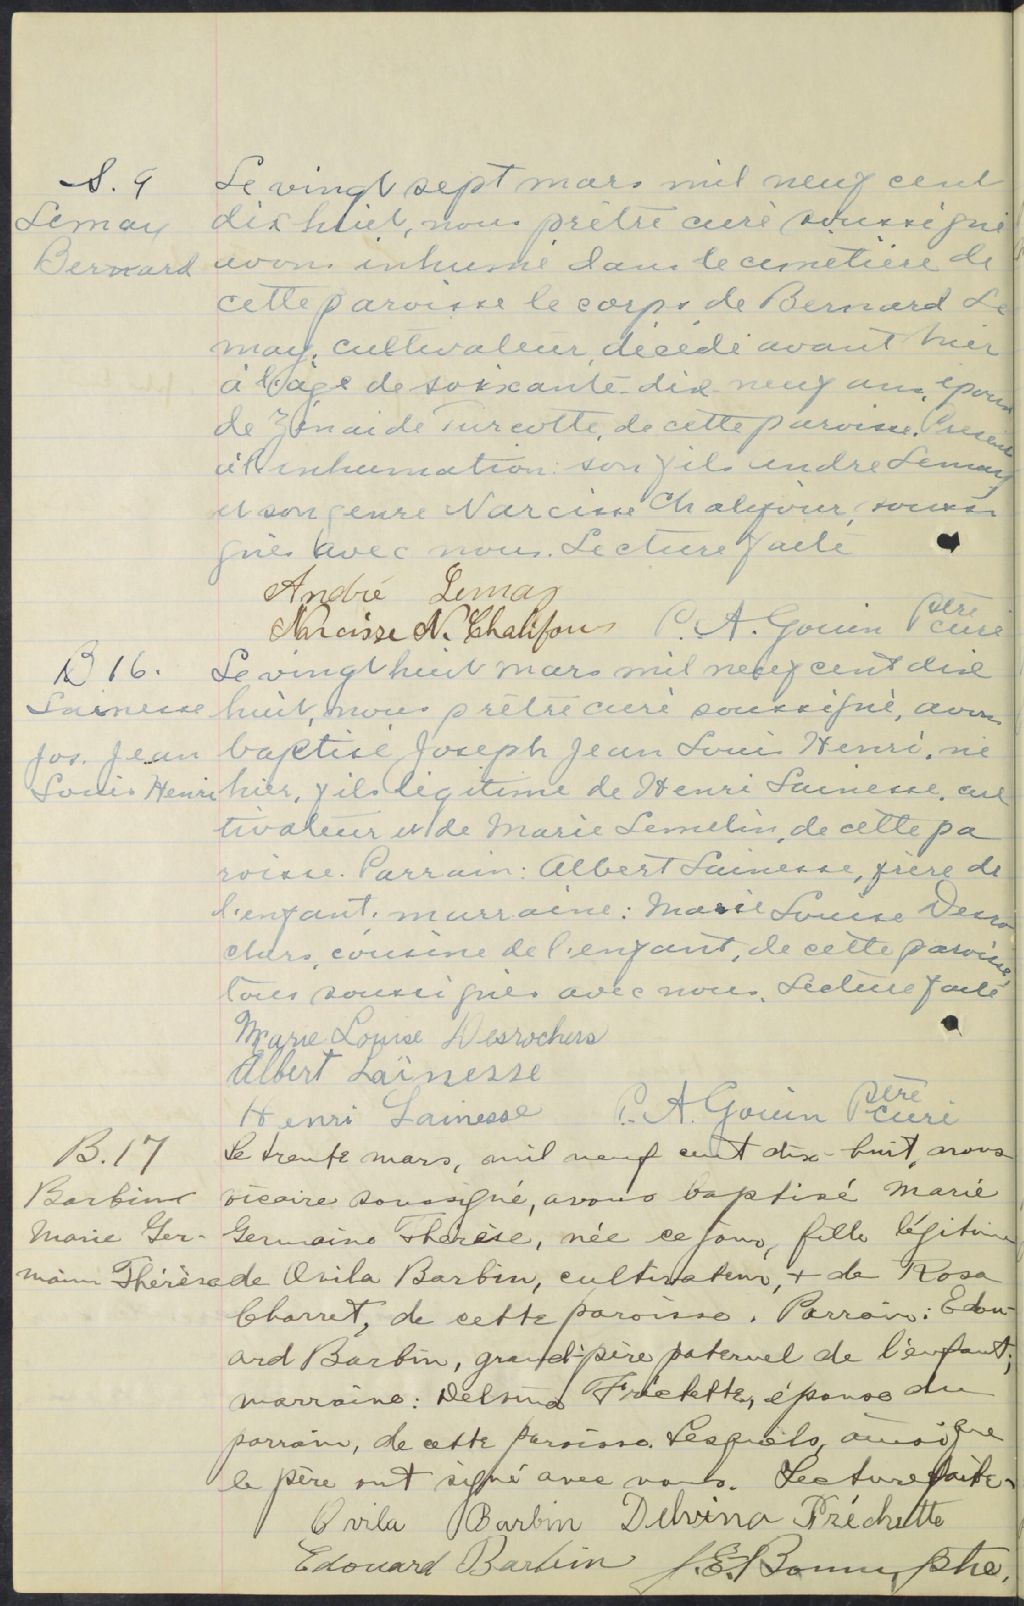 S. 9
Lemay
Bernard
Le vingt sept mars mil neuf cent
dix huit, nous prêtre curé soussigné
avons inhumé dans le cimetière de
cette paroisse le corps de Bernard Le
may, cultivateur, décédé avant hier
à l'âge de soixante-dix neuf ans, époux
de Zénaide Turcotte, de cette paroisse. Présents
à l'inhumation: son fils André Lemay
et son genre Narcisse Chalifour, soussi
gnés avec nous. Lecture faite
André Lemay
Narcisse N. Chalifour P. A. Gouin Ptre curé
B 16.
Lainesse
Jos. Jean
Louis Henri
Le vingt huit mars mil neuf cent dix
huit, nous prêtre curé soussigné, avons
baptisé Joseph Jean Louis Henri, né
hier, fils légitime de Henri Lainesse, cul
tivateur et de Marie Lemelin, de cette pa
roisse. Parrain: Albert Lainesse, frère de
l'enfant. marraine: Marie Louise Desro
chers, cousine de l'enfant, de cette paroisse,
tous soussignés avec nous. Lecture faite
Marie Louise Desrochers
Albert Laïnesse
Henri Lainesse P. A. Gouin Ptre curé
B. 17
Barbin
Marie Ger-
maine Thérèse
Le trente mars, mil neuf cent dix-huit, nous
vicaire soussigné, avons baptisé Marie
Germaine Thérèse, née ce jour, fille légitime
de Ovila Barbin, cultivateur, + de Rosa
Charret, de cette paroisse. Parrain: Edou-
ard Barbin, grand-père paternel de l'enfant;
marraine: Delvina Fréchette, épouse du
parrain, de cette paroisse. Lesquels, ainsi que
le père ont signé avec nous. Lecture faite.
Ovila Barbin Delvina Fréchette
Edouard Barbin J. E. ptre.